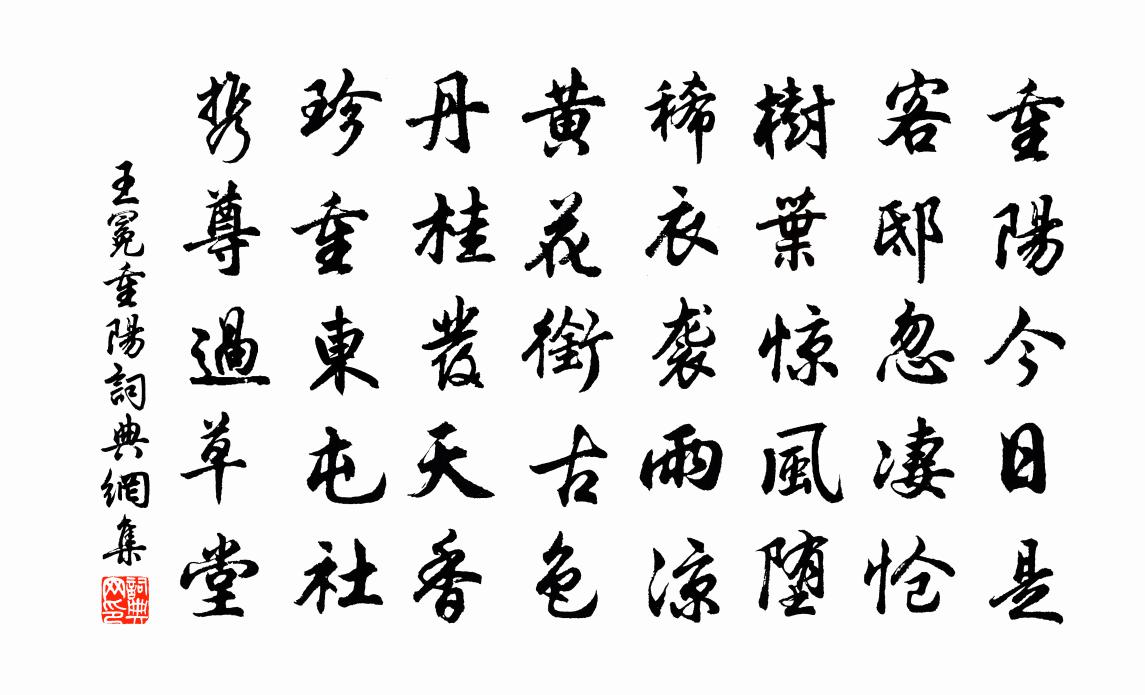 重陽今日是
客邸忽凄怆
樹葉惊風堕
稀衣袭雨凉
黄花銜古色
丹桂發天香
珍重東屯社
携尊過草堂
王冕重陽詞典網集
詞典網印